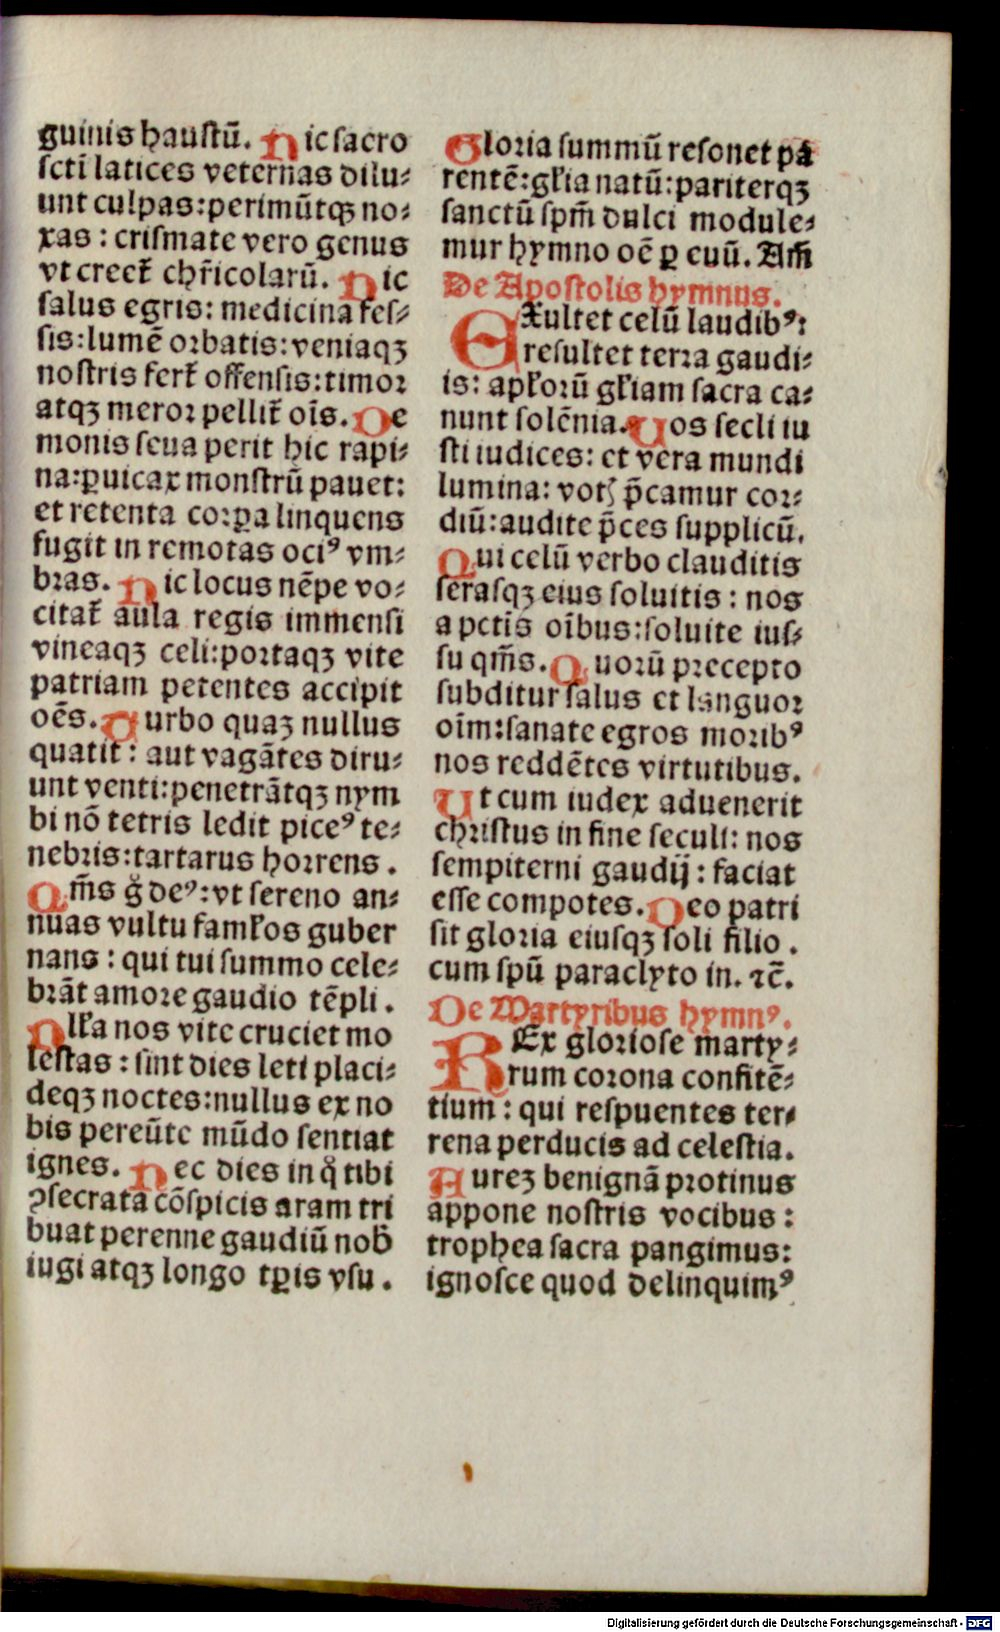 guinis haustū. Hic sacro
scti latices veternas dilu⸗
unt culpas:perimūtqꝫ no⸗
xas : crismate vero genus
vt creet̄ chr̄icolarū. Hic
salus egris: medicina fes⸗
sis:lumē orbatis:veniaqꝫ
nostris fert̄ offensis:timor
atqꝫ meror pellit̄ oīs. De
monis seua perit hic rapi⸗
na:ꝑuicax monstrū pauet:
et retenta corꝑa linquens
fugit in remotas ociꝰ vm⸗
bras. Hic locus nēpe vo⸗
citat̄ aula regis immensi
vineaqꝫ celi:portaqꝫ vite
patriam petentes accipit
oēs. Turbo quaꝫ nullus
quatit : aut vagātes diru⸗
unt venti:penetrātqꝫ nym
bi nō tetris ledit piceꝰ te⸗
nebris:tartarus horrens .
Qm̄s g̊ deꝰ:vt sereno an⸗
nuas vultu famłos guber
nans : qui tui summo cele⸗
brāt amore gaudio tēpli .
Nlła nos vite cruciet mo
lestas : sint dies leti placi⸗
deqꝫ noctes:nullus ex no
bis pereūte mūdo sentiat
ignes. Nec dies in q̊ tibi
ꝯsecrata cōspicis aram tri
buat perenne gaudiū nob̄
iugi atqꝫ longo tꝑis vsu .
Gloria summū resonet pa
rentē:głia natū:pariterqꝫ
sanctū spm̄ dulci module⸗
mur hymno oē ꝑ euū. Am̄
De Apostolis hymnus.
EXultet celū laudibꝰ:
resultet terra gaudi⸗
is: apłorū głiam sacra ca⸗
nunt solēnia. Uos secli iu
sti iudices: et vera mundi
lumina: votꝭ p̄camur cor⸗
diū:audite p̄ces supplicū.
Qui celū verbo clauditis
serasqꝫ eius soluitis : nos
a pctīs oībus:soluite ius⸗
su qm̄s. Quorū precepto
subditur salus et languor
oīm:sanate egros moribꝰ
nos reddētes virtutibus.
Ut cum iudex aduenerit
christus in fine seculi: nos
sempiterni gaudij : faciat
esse compotes. Deo patri
sit gloria eiusqꝫ soli filio .
cum spū paraclyto in. ⁊c̄.
De Martyribus hymnꝰ.
REx gloriose marty⸗
rum corona confitē⸗
tium : qui respuentes ter⸗
rena perducis ad celestia.
Aureꝫ benignā protinus
appone nostris vocibus :
trophea sacra pangimus:
ignosce quod delinquimꝰ
Digitalisierung gefördert durch die Deutsche Forschungsgemeinschaft - DFG